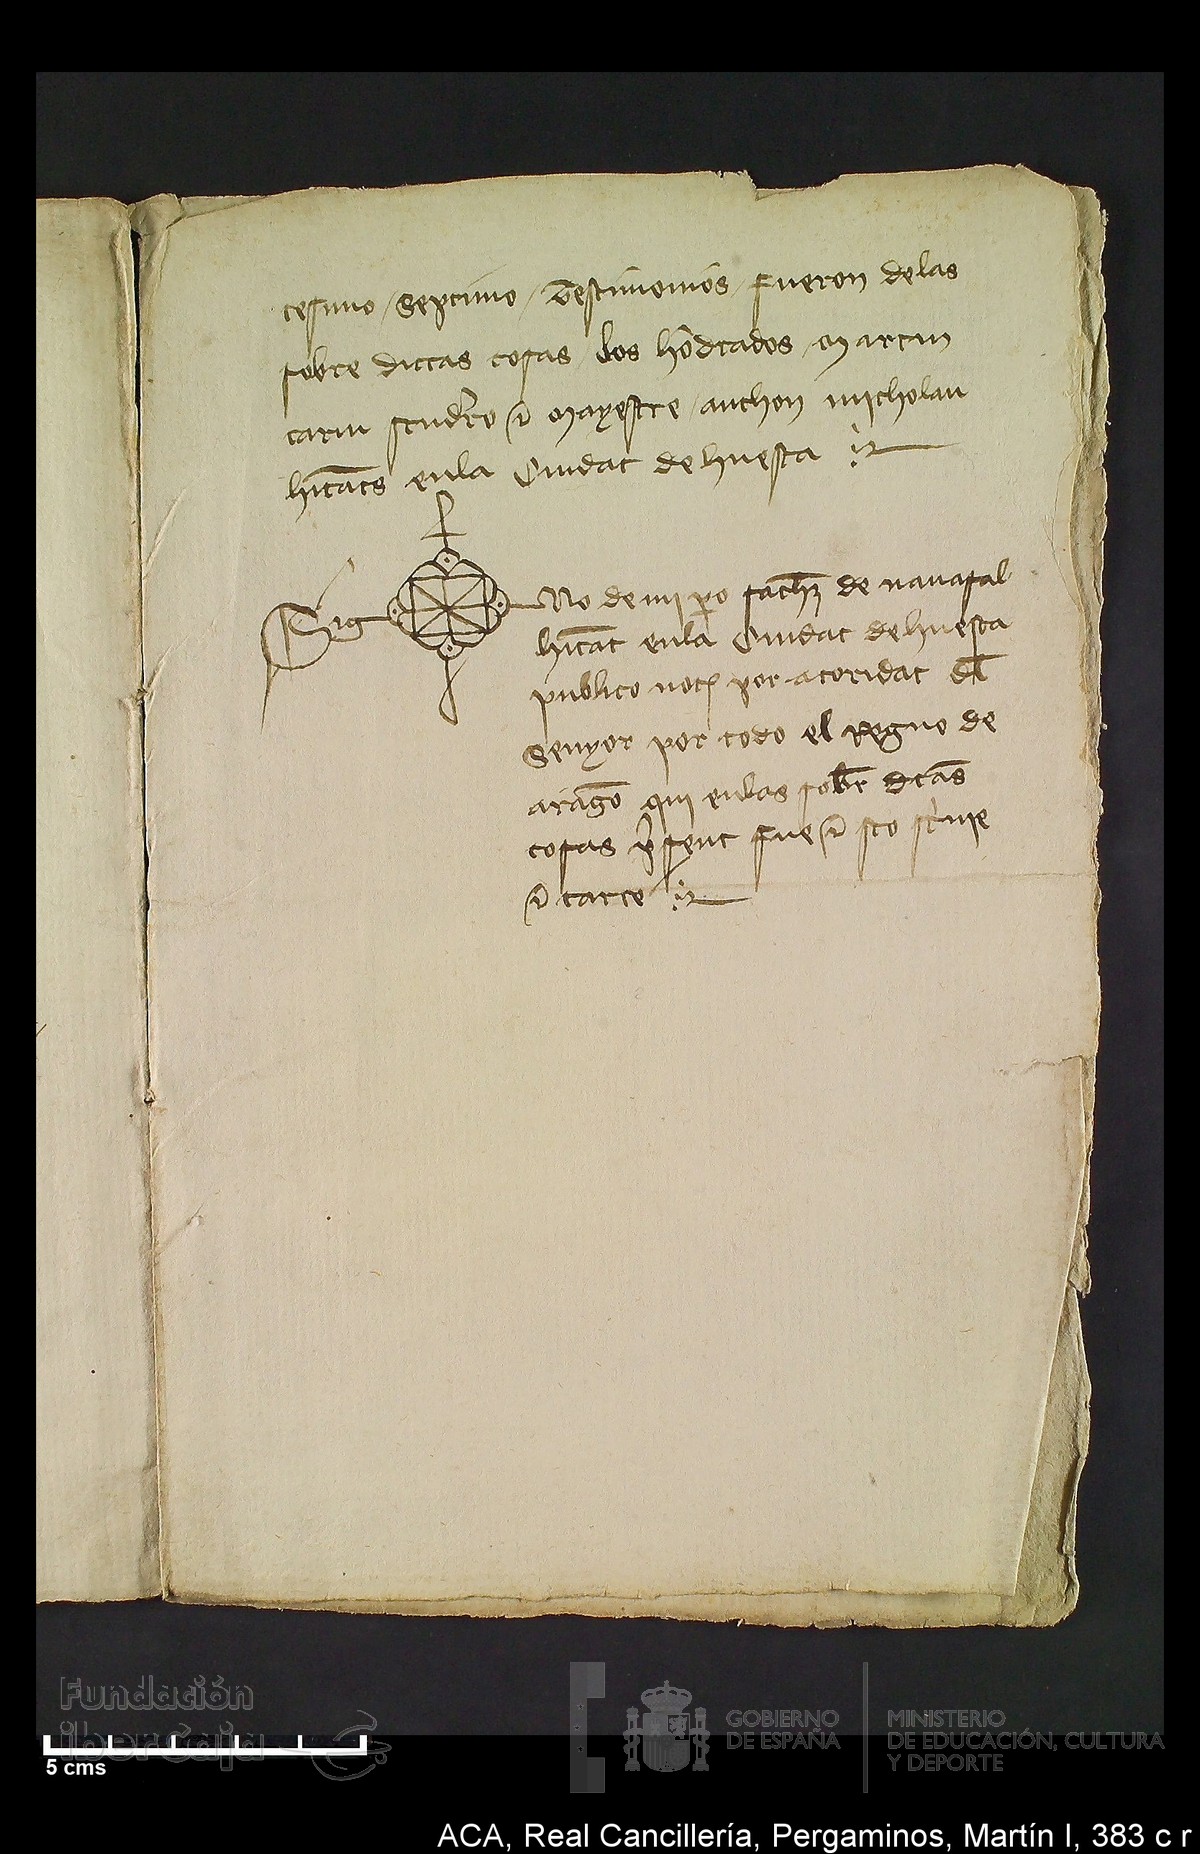 cesimo / septimo / Testimonios / fueron delas
sobre dictas cosas / los hōdrados / martin
carin scudero & mayestre / anthon nicholau
hitātes enla Ciudat de huesca
Sig No de mi po sāchz de nauasal
hitāt enla Ciudat de huesca
publico not por actoridat dl
senyor por todo el regno de
aragō qui enlas sobre dcās
cosas p̄sent fue & sto scriuie
& tarce
Fundación
iberCaja
5 cms
GOBIERNO
DE ESPAÑA
MINISTERIO
DE EDUCACIÓN, CULTURA
Y DEPORTE
ACA, Real Cancillería, Pergaminos, Martín I, 383 c r